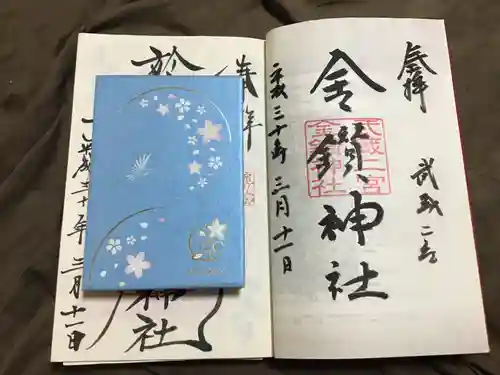 奉拝
武蔵二宮
金鑚神社
武蔵二宮
金鑚神社
平成三十年 三月十一日
奉拝
神社
平成三十年 三月十一日